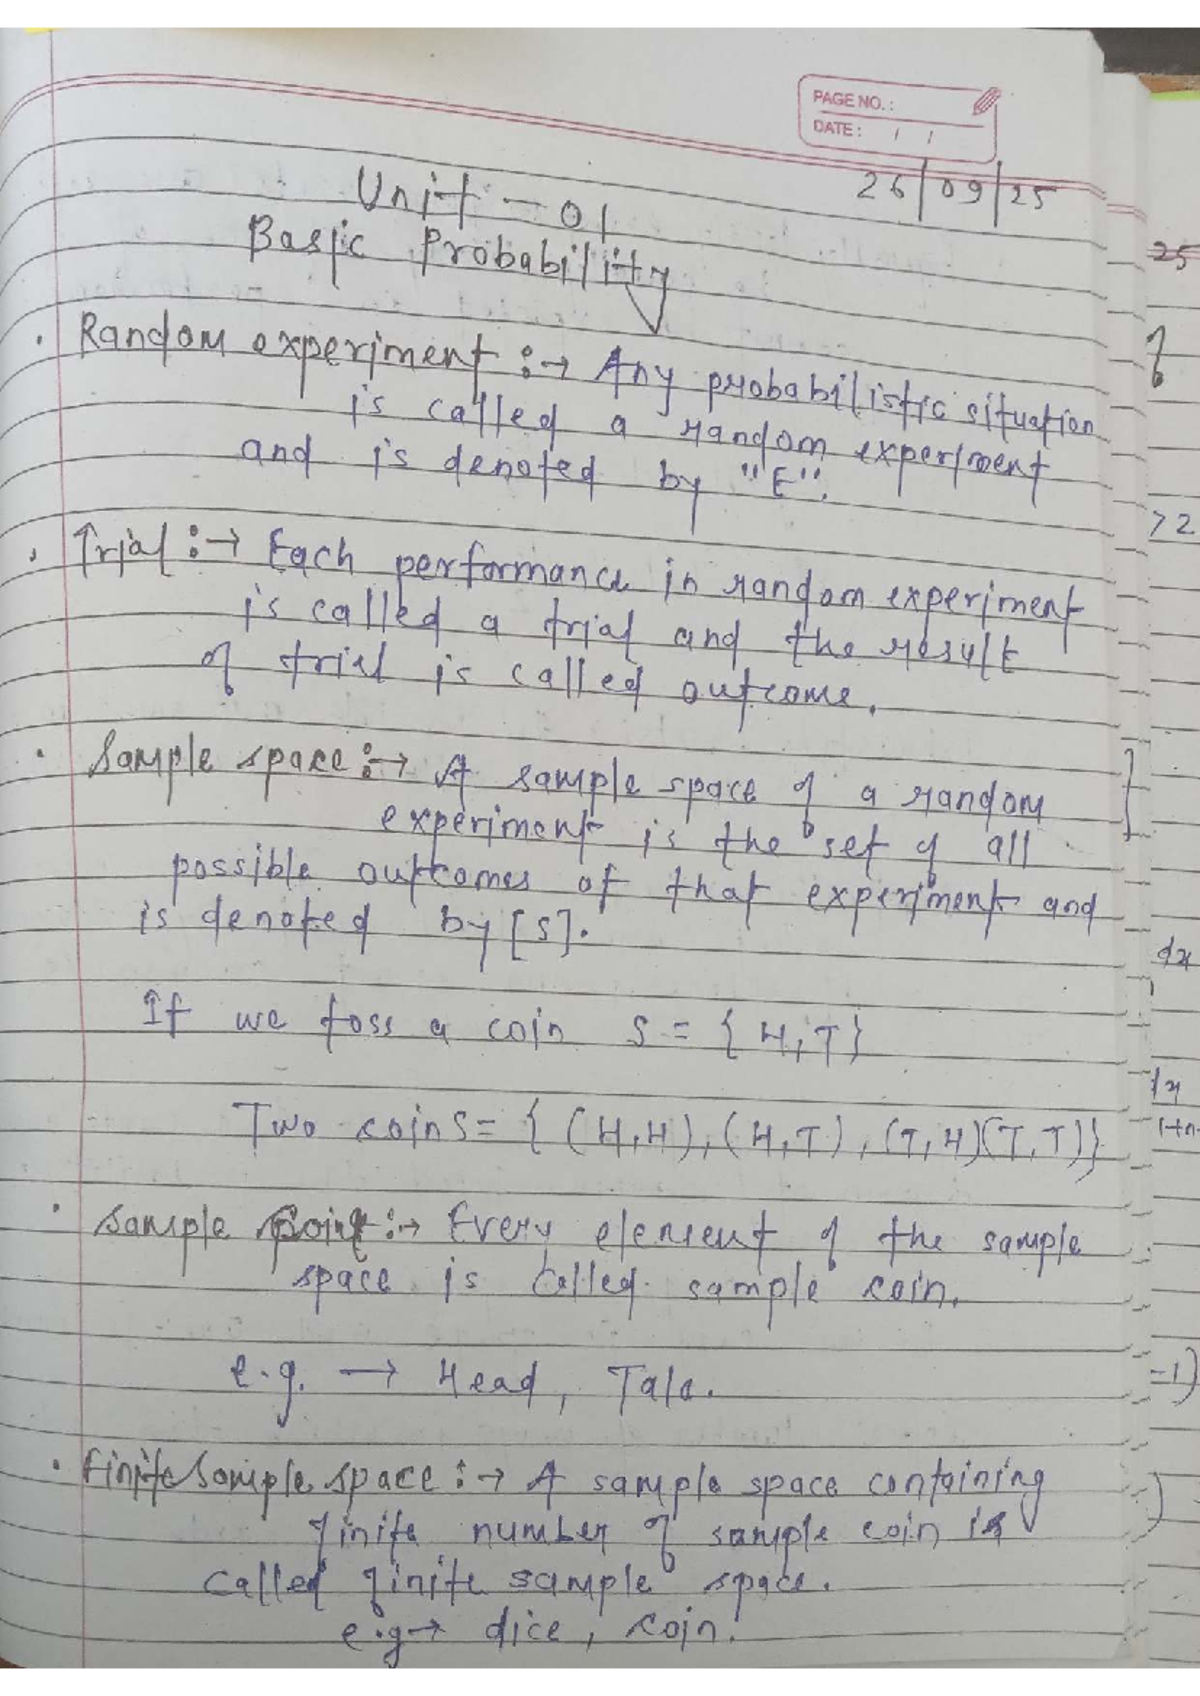 PAGE NO. :
DATE : / /
26/09/25
Unit - 01
Basic Probability
• Random experiment :→ Any probabilistic situation
is called a random experiment
and is denoted by "E".
• Trial :→ Each performance in random experiment
is called a trial and the result
of trial is called outcome.
• Sample space :→ A sample space of a random
experiment is the set of all
possible outcomes of that experiment and
is denoted by [S].
If we toss a coin S = { H, T}
Two coin S = { (H,H), (H,T), (T,H)(T,T)}
• Sample Point :→ Every element of the sample
space is called sample coin.
e.g. → Head, Tala.
• finite Sample space :→ A sample space containing
finite number of sample coin is
called finite sample space.
e.g → dice, coin.
25
72
dx
1x
1+n
-1)